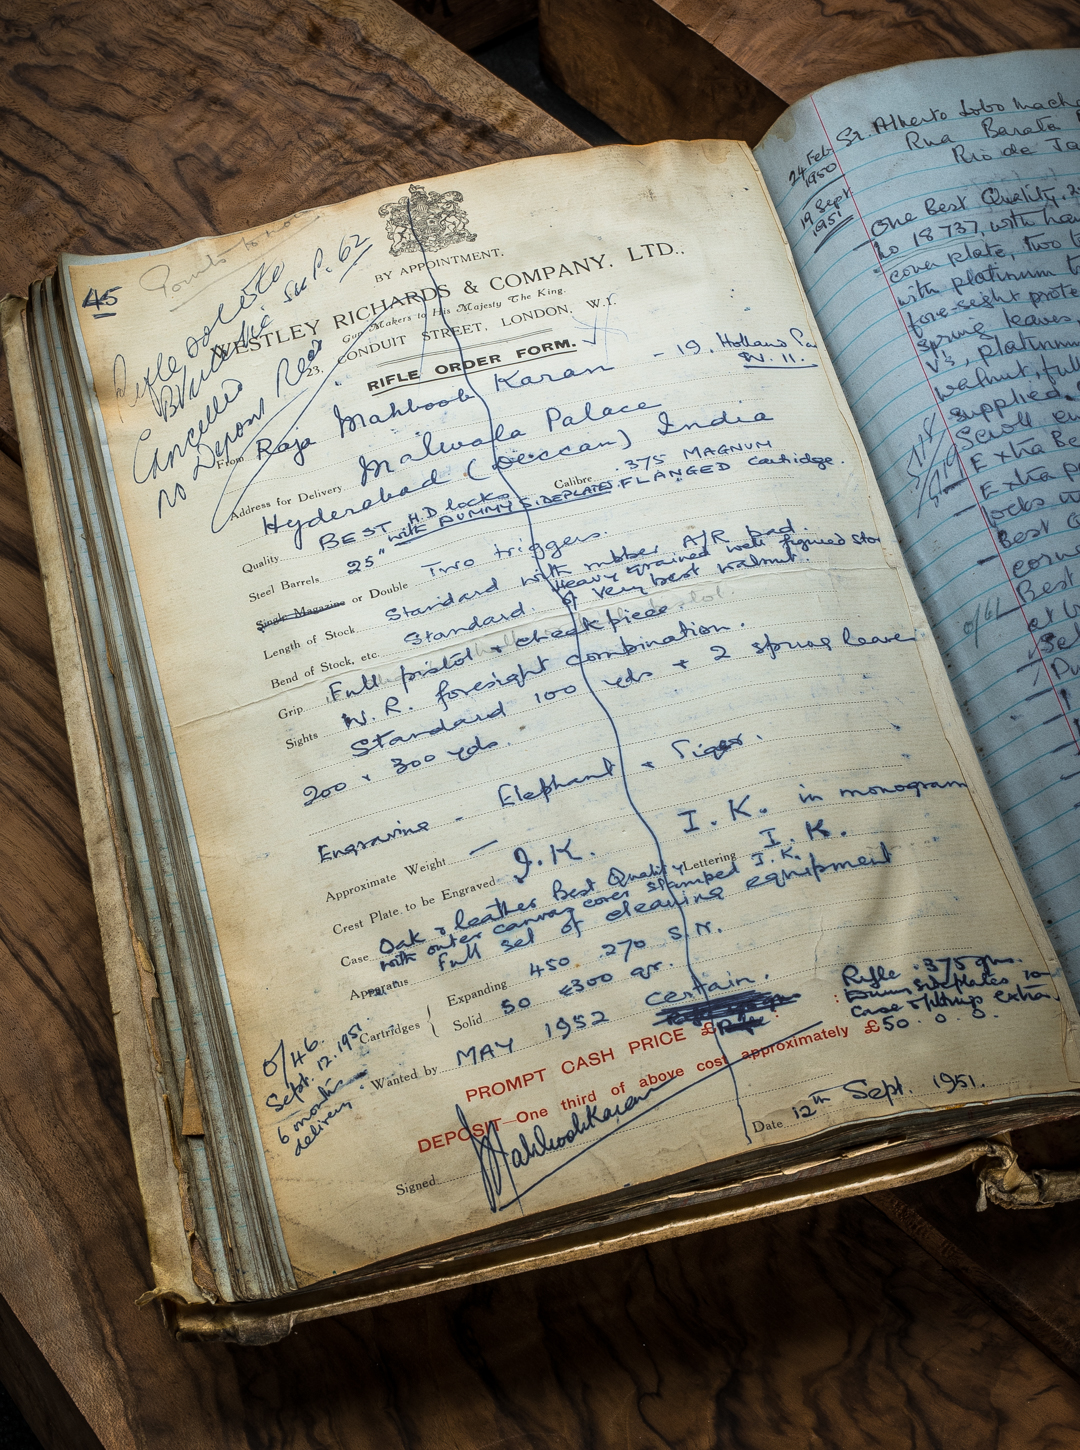 45
Rifle sold to
B. Mathie see P. 62
Cancelled
No Deposit Recd
BY APPOINTMENT.
WESTLEY RICHARDS & COMPANY, LTD.,
Gun Makers to His Majesty The King.
23, CONDUIT STREET, LONDON, W.1.
RIFLE ORDER FORM.
- 19, Holland
W. 11.
From Raja Mahboob Karan
Address for Delivery Malwala Palace
Hyderabad (Deccan) India
Quality BEST H.D locks with DUMMY SIDEPLATES Calibre .375 MAGNUM FLANGED Cartridge.
Steel Barrels 25"
Single Magazine or Double Two triggers.
Length of Stock Standard with rubber A/R pad.
Bend of Stock, etc. Standard. Heavy grained well figured
of very best walnut.
Grip Full pistol + cheekpiece
Sights W.R. foresight combination.
Standard 100 yds + 2 spring leaves
200 + 300 yds.
Engraving - Elephant + Tiger.
Approximate Weight —
Crest Plate to be Engraved J.K. Lettering I.K. in monogram
Case Oak & leather Best Quality I.K.
with outer canvas cover stamped I.K.
Apparatus Full set of cleaning equipment
Cartridges { Expanding 450 .270 S.N.
Solid 50 300 gr.
Wanted by MAY 1952 certain.
O/46.
Sept. 12. 1951
6 months
delivery
PROMPT CASH PRICE £
Rifle .375
Dummy sideplates
Case & fittings extra.
DEPOSIT—One third of above cost approximately £50. 0. 0.
Signed Mahboob Karan
Date 12th Sept. 1951.
24 Feb
1950
Sr. Alberto Lobo
Rua Barata
Rio de
19 Sept
1951
One Best Quality
No 18737, with
cover plate, two
with platinum
fore-sight
spring leaves
V's, platinum
walnut, full
supplied.
Scroll
Extra
Extra
locks
Best
corne
Best
at